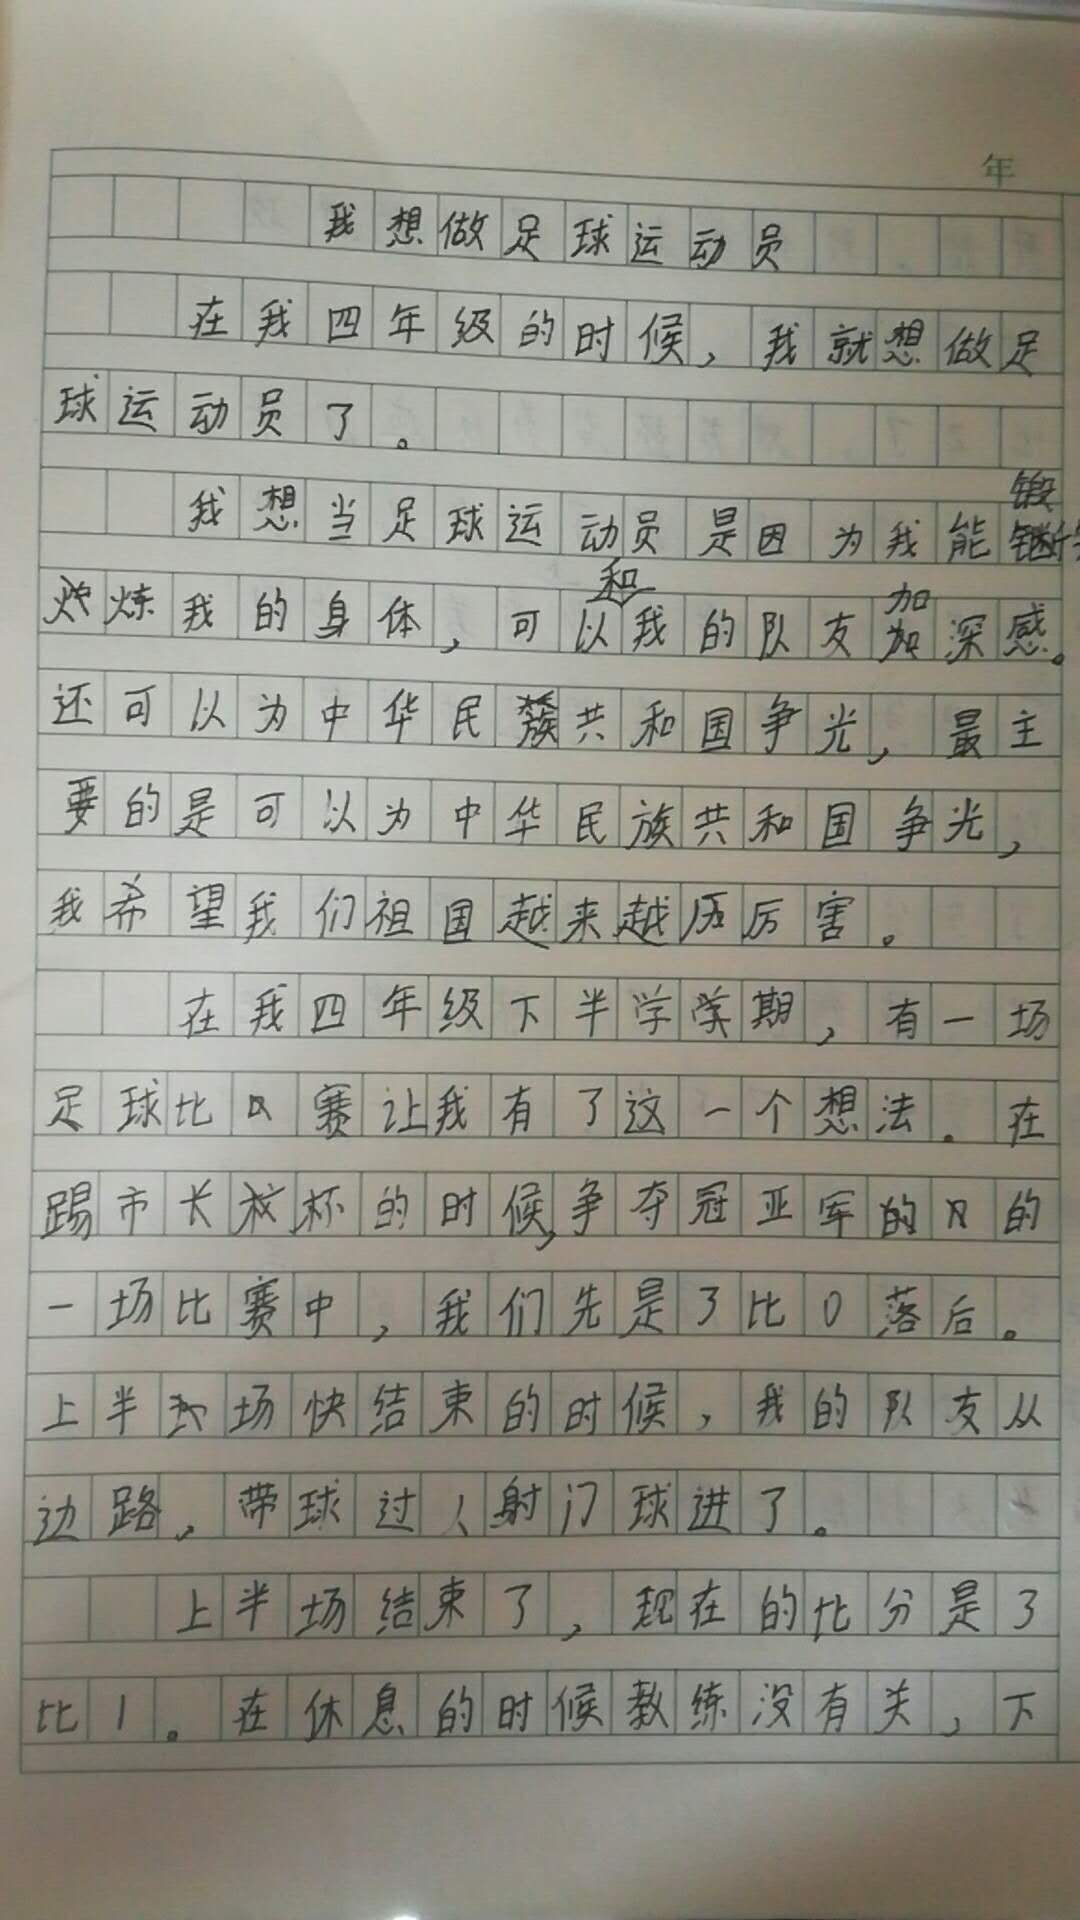 年
我想做足球运动员
在我四年级的时候，我就想做足
球运动员了。
我想当足球运动员是因为我能锻
炼我的身体，可以和我的队友加深感。
还可以为中华民族共和国争光，最主
要的是可以为中华民族共和国争光，
我希望我们祖国越来越历厉害。
在我四年级下半学学期，有一场
足球比赛让我有了这一个想法。在
踢市长杯的时候，争夺冠亚军的的
一场比赛中，我们先是3比0落后。
上半场快结束的时候，我的队友从
边路，带球过人射门球进了。
上半场结束了，现在的比分是3
比1。在休息的时候教练没有关，下